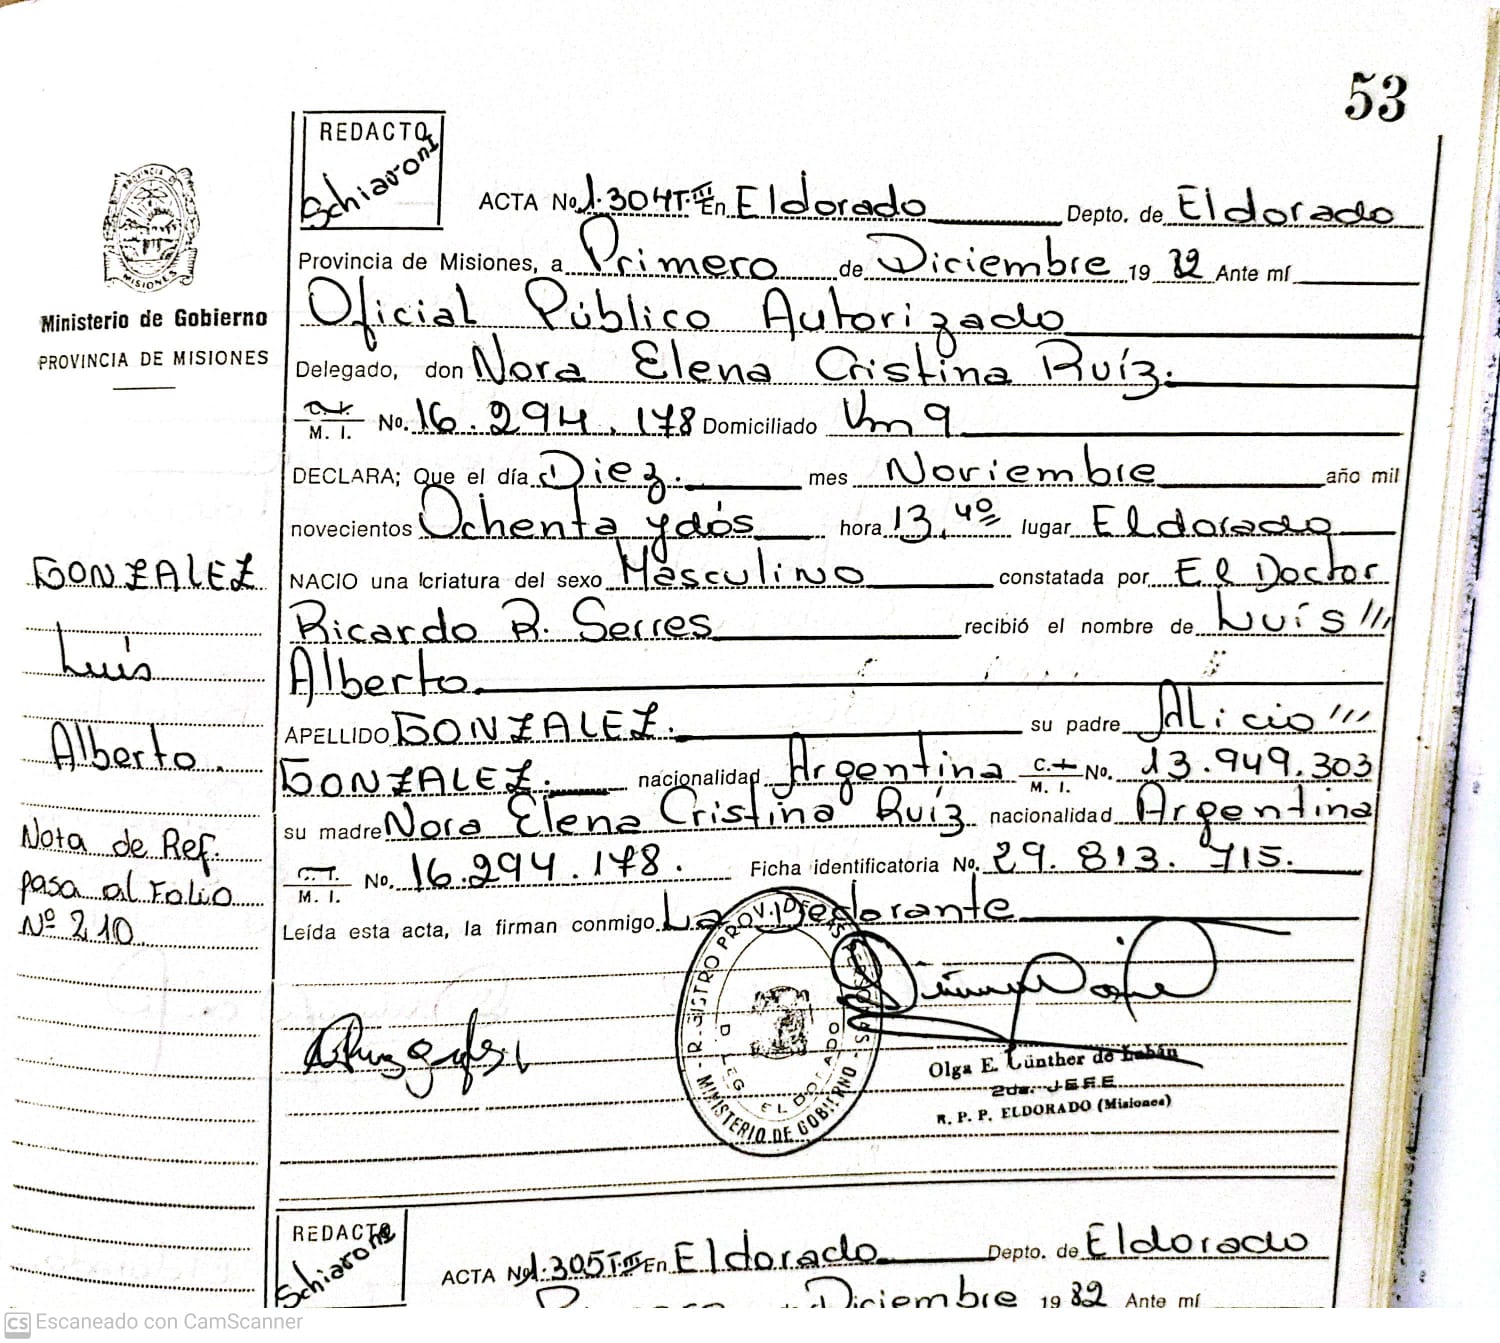 53
REDACTO
Schiavoni
ACTA No. 1.304 T.III En Eldorado Depto. de Eldorado
Provincia de Misiones, a Primero de Diciembre 19 82 Ante mí
Oficial Público Autorizado
Delegado, don Nora Elena Cristina Ruíz.
M. I. No. 16.294.178 Domiciliado Km 9
DECLARA; Que el día Diez. mes Noviembre año mil
novecientos Ochenta y dós hora 13,40 lugar Eldorado
NACIO una criatura del sexo Masculino constatada por El Doctor
Ricardo R. Serres recibió el nombre de Luís ///
Alberto.
APELLIDO GONZALEZ. su padre Alicio ///
GONZALEZ. nacionalidad Argentina C. I. M. I. No. 13.949.303
su madre Nora Elena Cristina Ruíz nacionalidad Argentina
C. I. M. I. No. 16.294.178. Ficha identificatoria No. 29.813.715.
Leída esta acta, la firman conmigo La Declarante
PROVINCIA DE MISIONES
Ministerio de Gobierno
PROVINCIA DE MISIONES
GONZALEZ
Luis
Alberto.
Nota de Ref.
pasa al Folio
Nº 210
REGISTRO PROV. DE LAS PERSONAS - MINISTERIO DE GOBIERNO -
DELEG. ELDORADO
Olga E. Günther de
2da. JEFE
R. P. P. ELDORADO (Misiones)
REDACTO
Schiavoni
ACTA No. 1.305 T.III En Eldorado Depto. de Eldorado
Diciembre 19 82 Ante mí
CS Escaneado con CamScanner